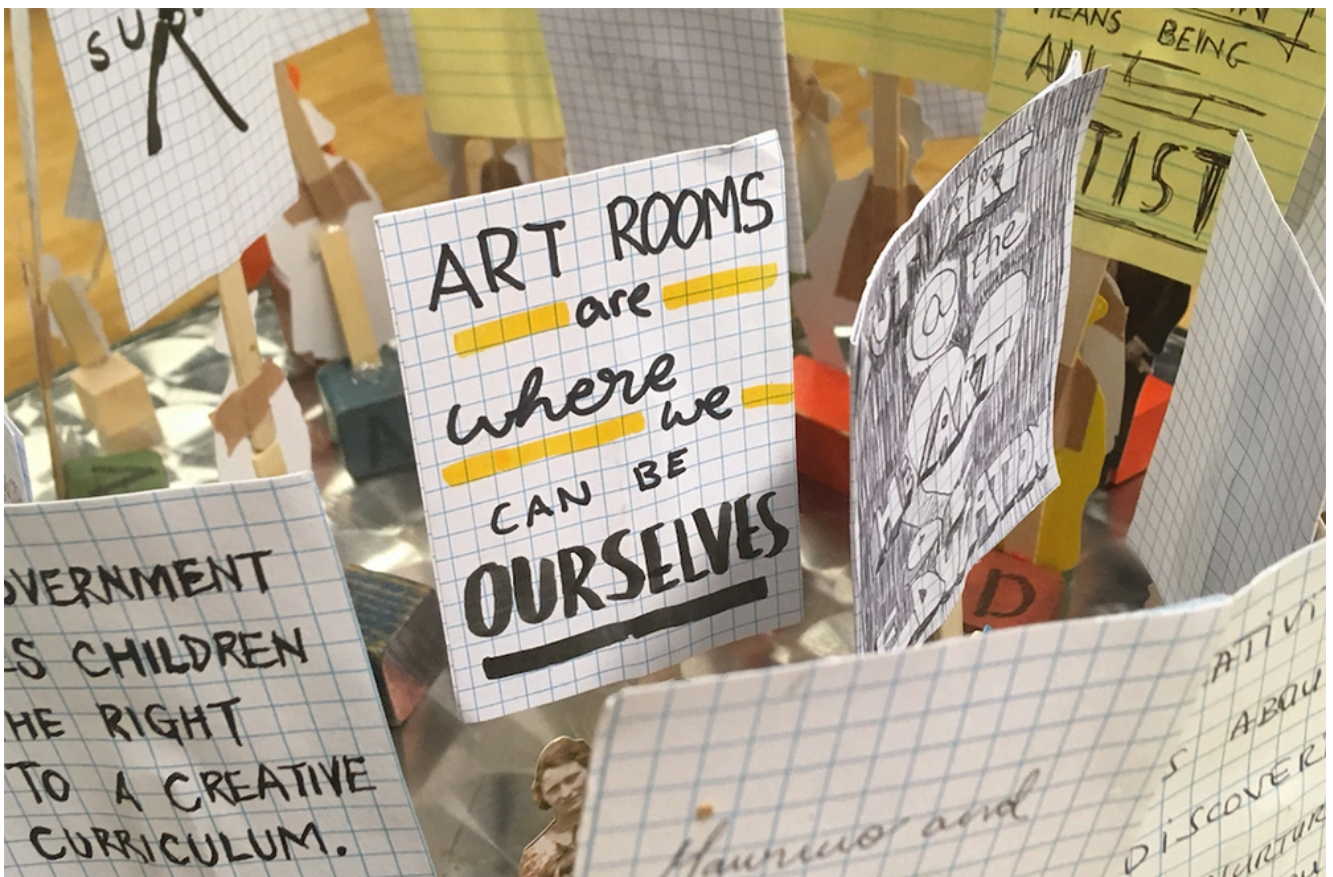 SUR
MEANS BEING
AN
TIST
ART ROOMS
are
where
we
CAN BE
OURSELVES
START
@ the
ART
EDUCATION
D
A
OVERNMENT
ES CHILDREN
HE RIGHT
TO A CREATIVE
CURRICULUM.
and
ATIVIT
S ABOU
DISCOVER
NURTUR